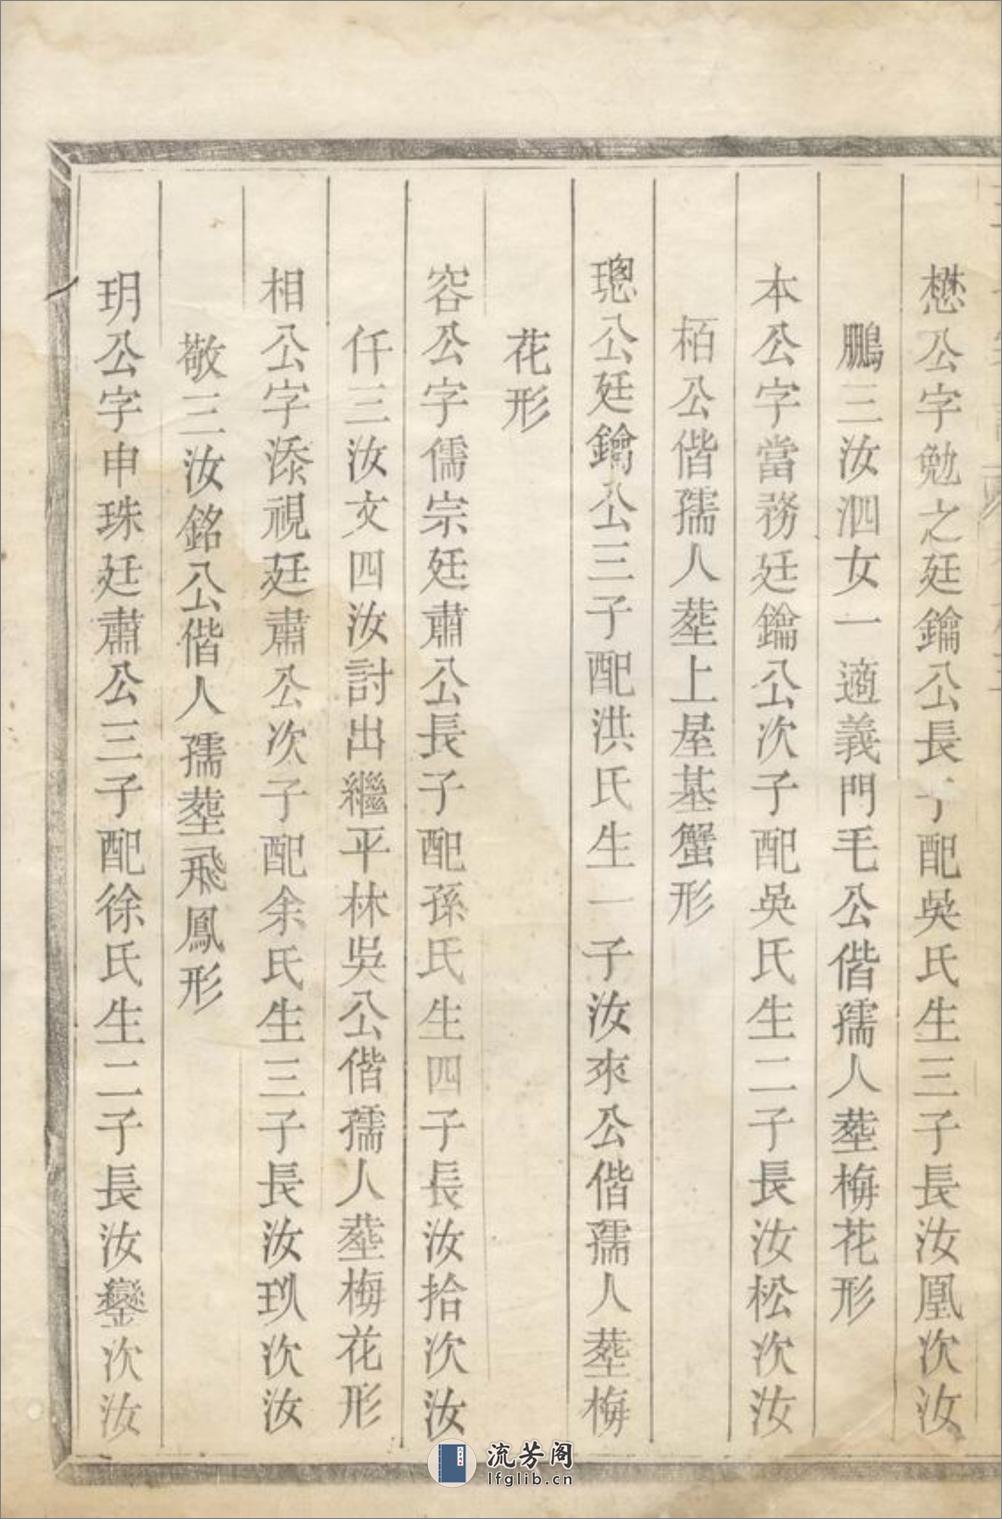 懋公字勉之廷鑰公長子配吳氏生三子長汝凰次汝
鵬三汝泗女一適義門毛公偕孺人塟梅花形
本公字當務廷鑰公次子配吳氏生二子長汝松次汝
栢公偕孺人塟上屋基蟹形
璁公廷鑰公三子配洪氏生一子汝來公偕孺人塟梅
花形
容公字儒宗廷肅公長子配孫氏生四子長汝拾次汝
仟三汝文四汝討出繼平林吳公偕孺人塟梅花形
相公字添視廷肅公次子配余氏生三子長汝玖次汝
敬三汝銘公偕人孺塟飛鳳形
玥公字申珠廷肅公三子配徐氏生二子長汝鑾次汝
流芳阁
lfglib.cn